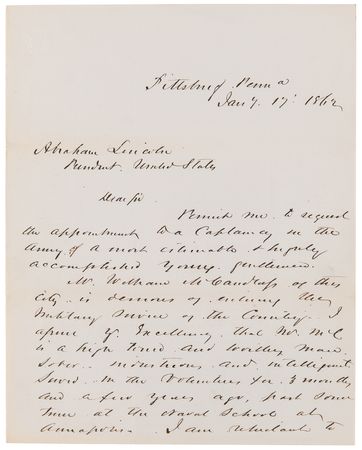 Pittsburg Penna
Jany. 17. 1862
Abraham Lincoln
President United States
Dear Sir
Permit me to request
the appointment to a Captaincy in the
Army of a most estimable & highly
accomplished young gentleman.
Mr. William McCandless of this
city is desirous of entering the
Military service of the Country. I
assure Yr. Excellency that Mr. McC
is a high toned and worthy man
sober industrious and intelligent
Served in the Volunteers for 3 months
and a few years ago, past some
time at the Naval School at
Annapolis. I am reluctant to